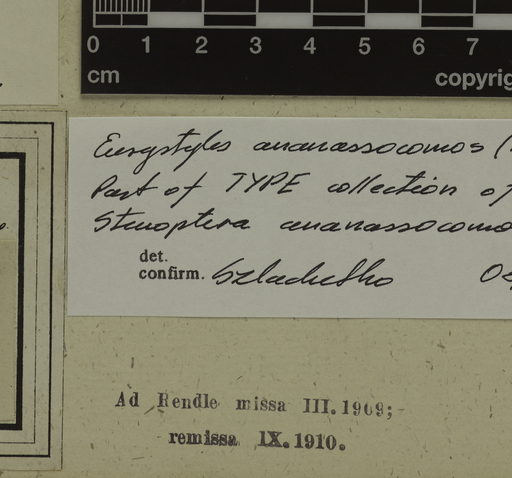 0 1 2 3 4 5 6 7
cm copyrig
Eurystyles ananassocomos (
Part of TYPE collection of
Stenoptera ananassocomo
det.
confirm. Szlachetko
Ad Rendle missa III.1909;
remissa IX.1910.